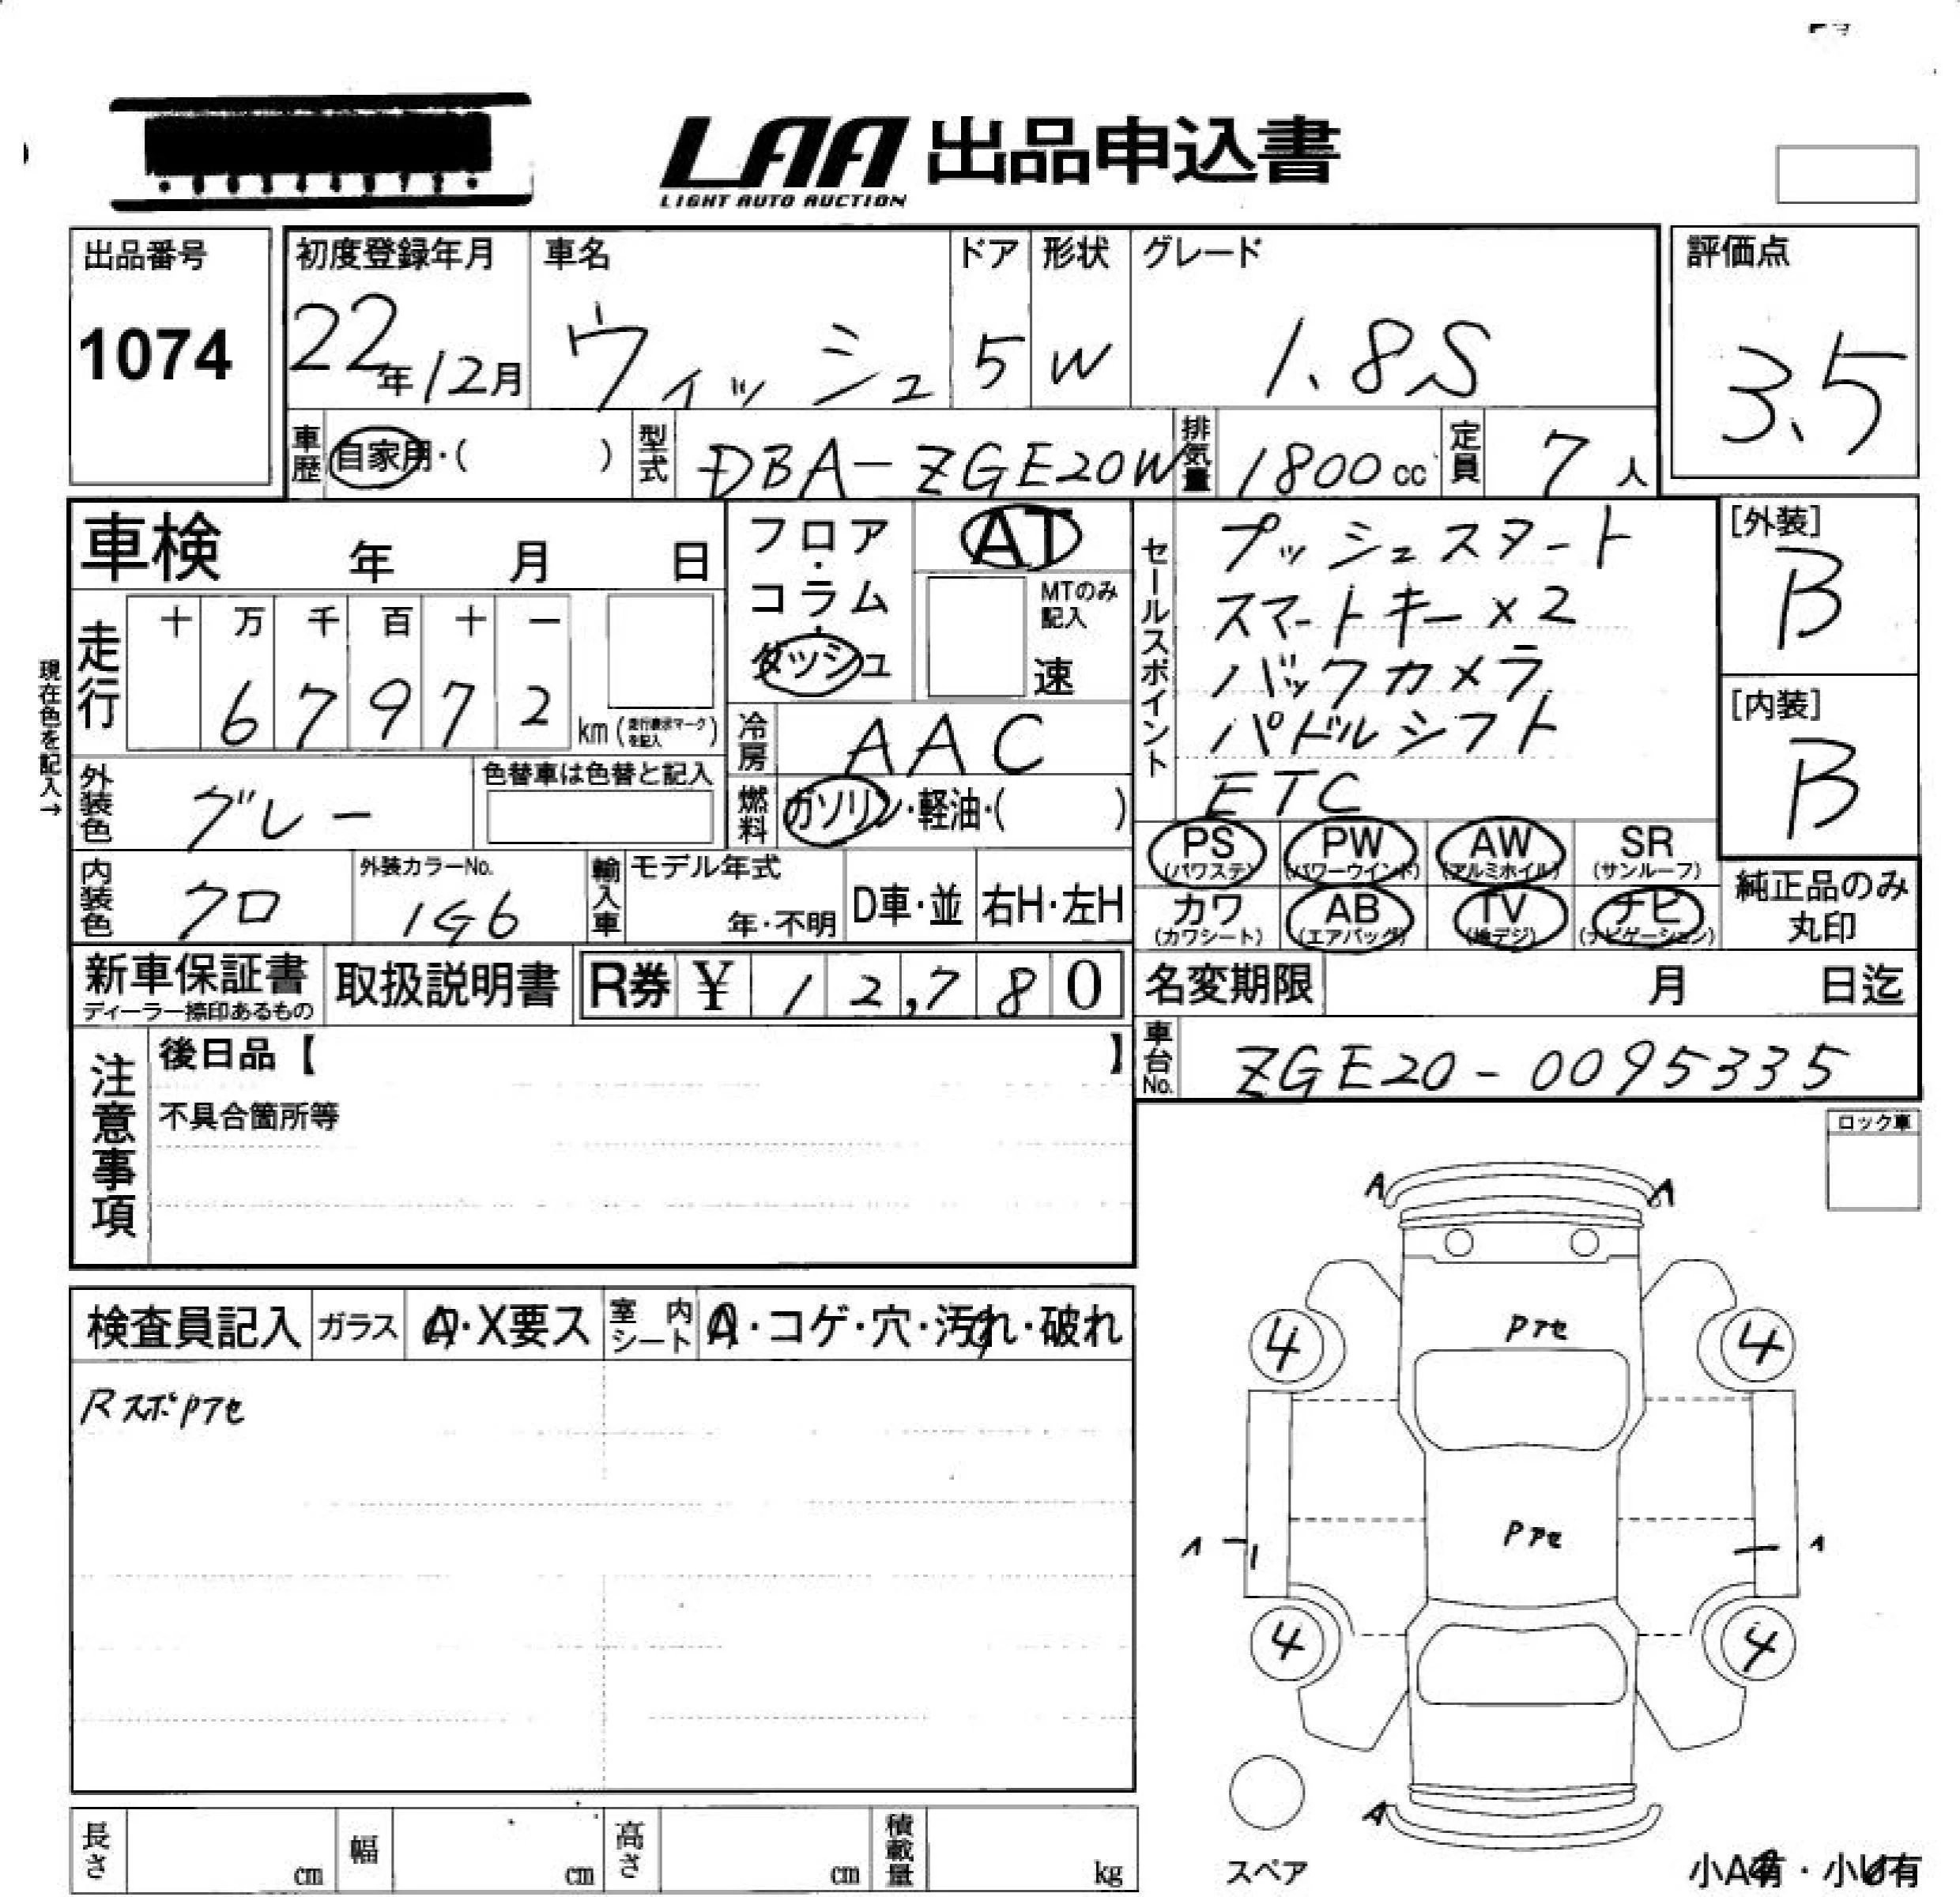 LAA 出品申込書
LIGHT AUTO AUCTION
出品番号
1074
初度登録年月
22年12月
車名
ウィッシュ
ドア
5
形状
W
グレード
1.8S
評価点
3.5
車歴
自家用・( )
型式
DBA-ZGE20W
排気量
1800cc
定員
7人
車検 年 月 日
フロア・コラム・ダッシュ
AT
MTのみ記入
速
セールスポイント
プッシュスタート
スマートキー×2
バックカメラ
パドルシフト
ETC
[外装]
B
[内装]
B
現在色を記入→
走行
十 万 千 百 十 一
6 7 9 7 2 km (走行表示マークを記入)
冷房
AAC
外装色
グレー
色替車は色替と記入
燃料
ガソリン・軽油・( )
PS (パワステ)
PW (パワーウインド)
AW (アルミホイル)
SR (サンルーフ)
カワ (カワシート)
AB (エアバッグ)
TV (地デジ)
ナビ (ナビゲーション)
純正品のみ丸印
内装色
クロ
外装カラーNo.
1G6
輸入車
モデル年式
年・不明
D車・並
右H・左H
新車保証書
ディーラー捺印あるもの
取扱説明書
R券 ¥ 12,780
名変期限 月 日迄
車台No.
ZGE20-0095335
注意事項
後日品【 】
不具合箇所等
ロック車
検査員記入
ガラス
A・X要ス
室内シート
A・コゲ・穴・汚れ・破れ
RスポPアセ
A A
Pアセ
4 4
Pアセ
4 4
A
スペア
長さ cm
幅 cm
高さ cm
積載量 kg
小A有・小U有